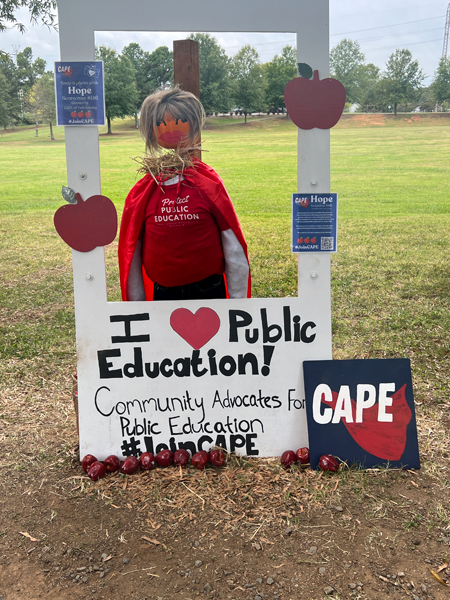 CAPE
Hope
#JoinCAPE
Protect
PUBLIC
EDUCATION
CAPE Hope
#JoinCAPE
I Public
Education!
Community Advocates For
Public Education
#JoinCAPE
CAPE